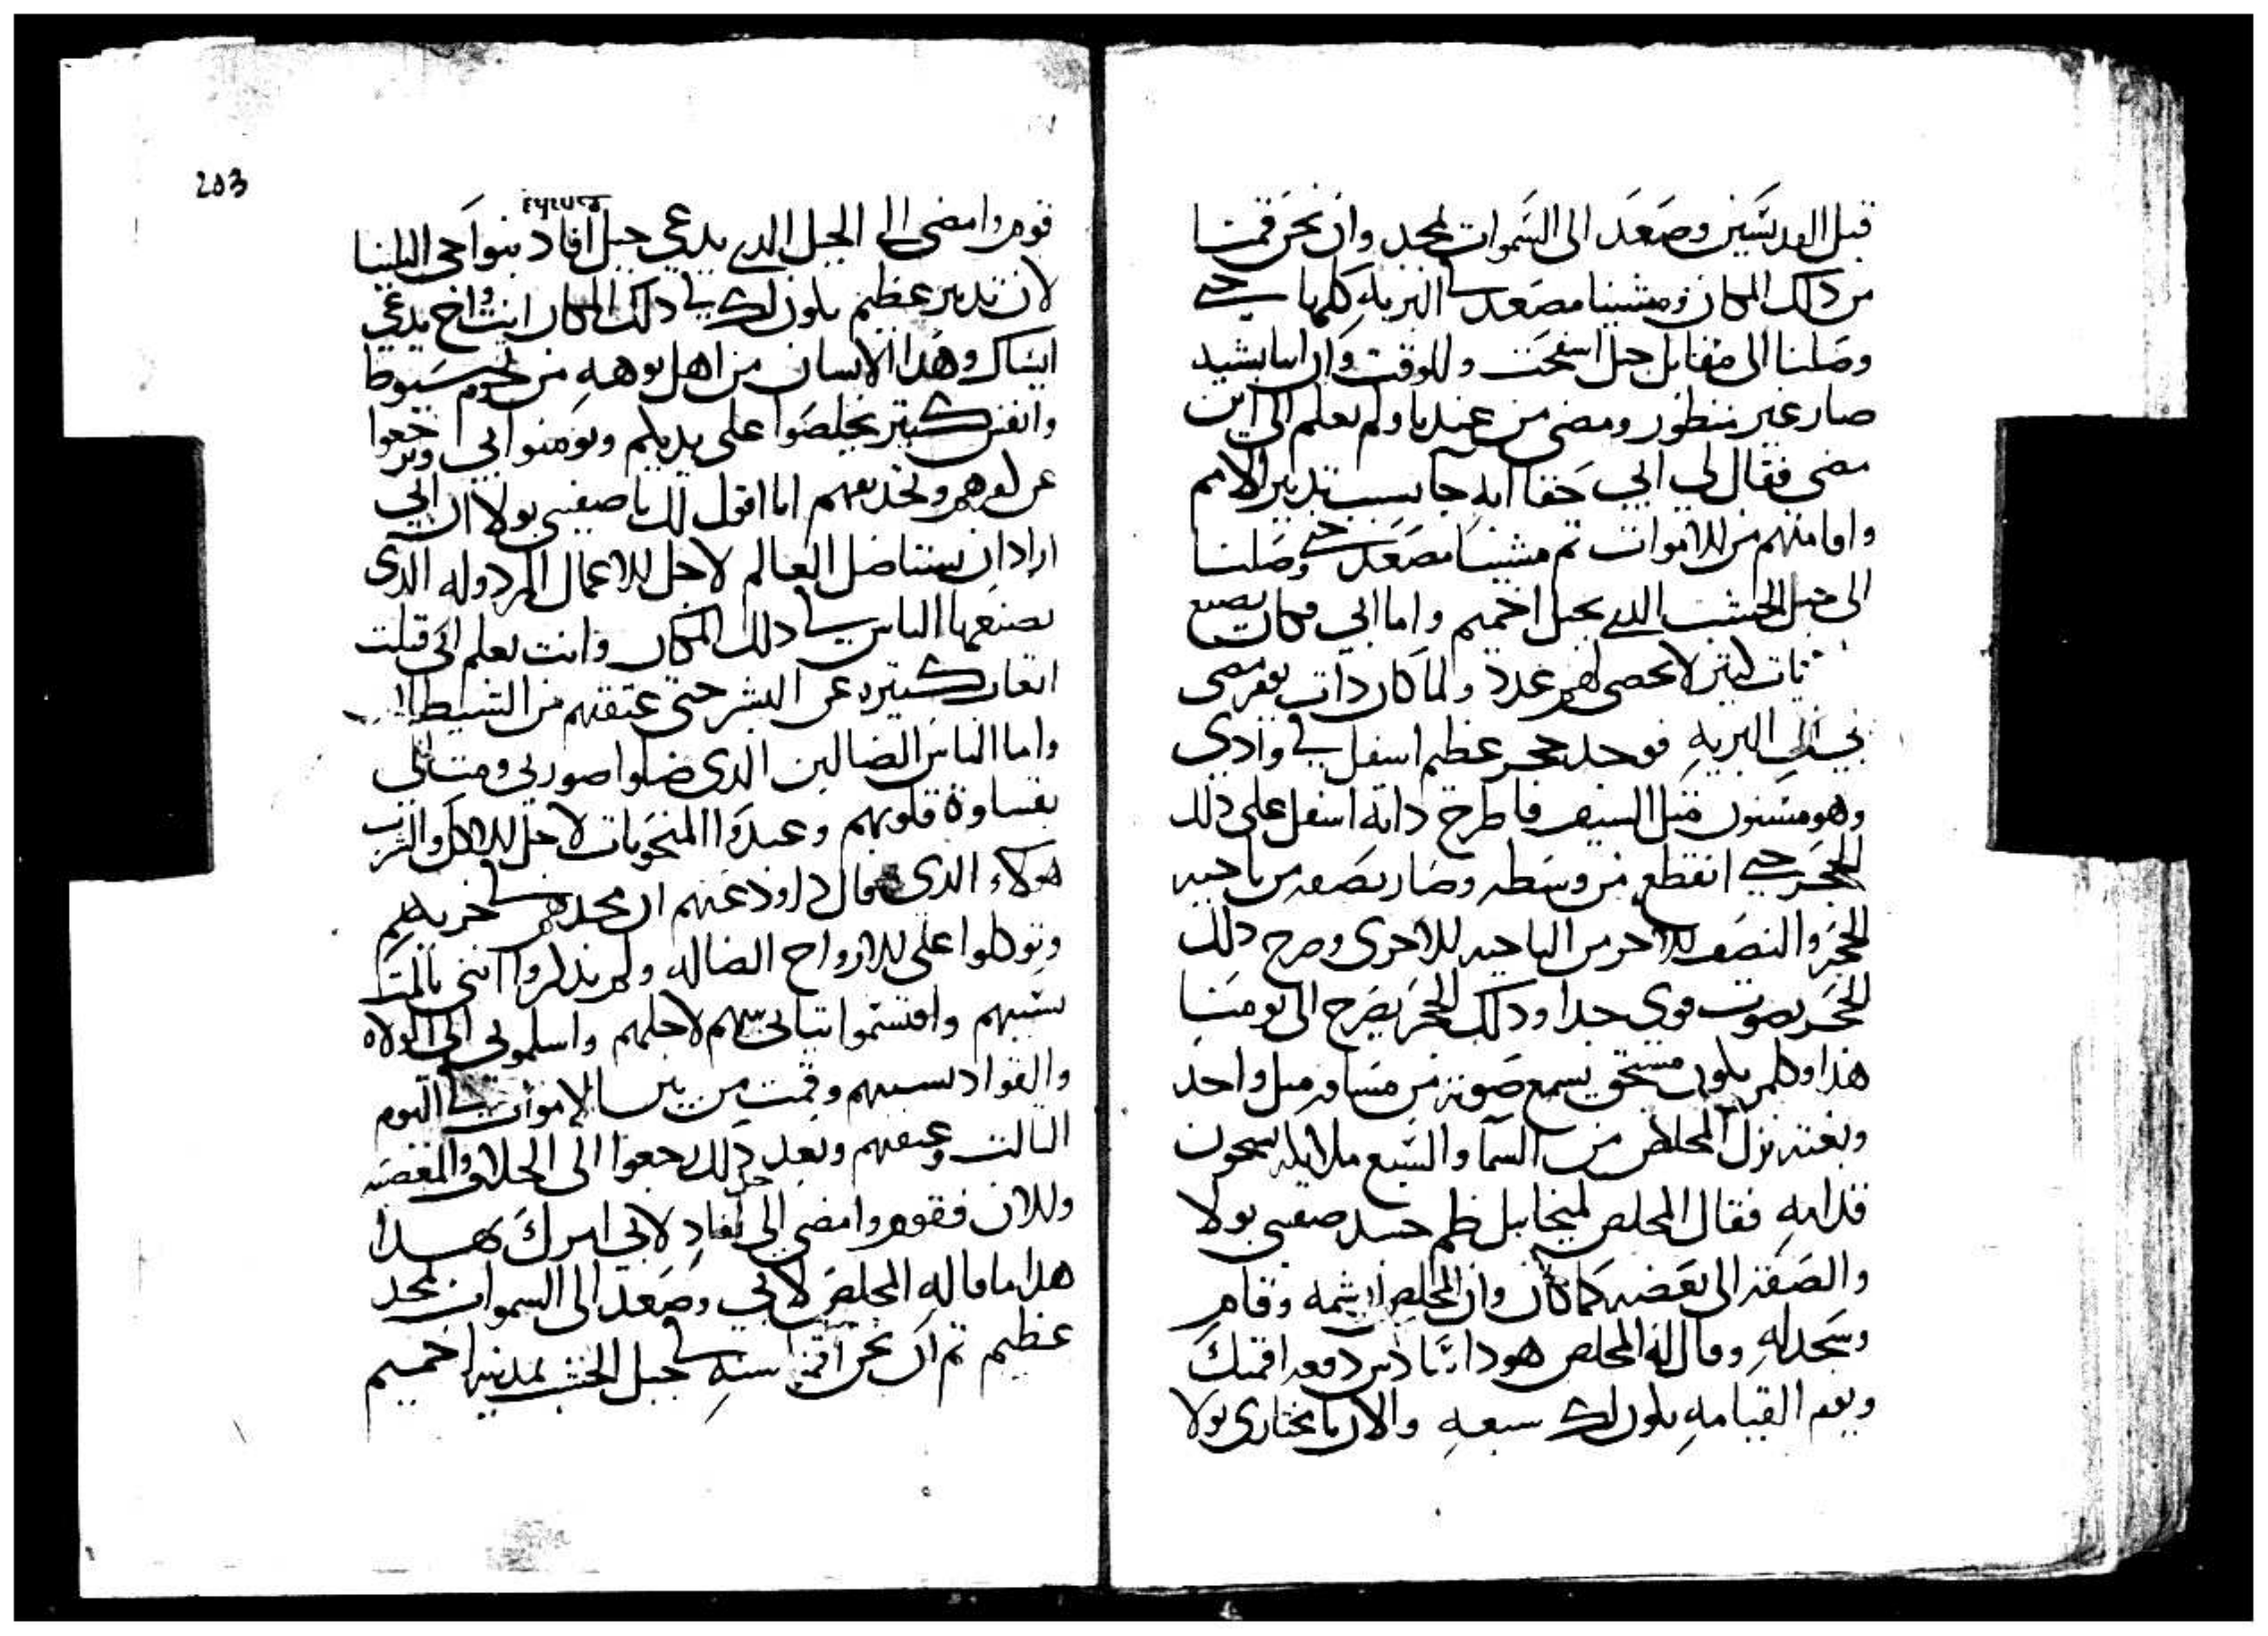 قبل القديسين وصَعَد الى السَموات بمجد وان نحن قمنا
من دلك المكان ومشينا مصَعد في البريه كلها حتى
وصَلنا الى مقابل جبل اسفحت وللوقت وان انبا بشيد
صار غير منظور ومضى من عندنا ولم نعلم الى اين
مضى فقال لي ابي حَقا انه جا بسبب تدبير الامم
واقامتهم من الاموات تم مشينا مصَعد حتى وصَلنا
الى جبل الخشب الدي بجبل اخميم واما ابي فكان يصنع
لاتحصى لهم عدد ولما كان دات يوم مضى
بي الى البريه فوجد حجر عظيم اسفل في وادي
وهو مسنون متل السيف فاطرح داته اسفل على دلك
الحجر حتى انقطع من وسَطه وصَار نصَفه من ناحيه
الحجر والنصَف الاخر من الناحيه الاخرى وصرخ دلك
الحجر بصوت قوي جدا ودلك الحجر يصَرخ الى يومنا
هذا وكلمن يكون مستحق يسمع صَوته من مسَافه ميل واحد
وبغته نزل المخلص من السما والسَبع ملايكه يسبحون
قدامه فقال المخلص لميخاييل ظم جسد صفيي بولا
والصَقه الى بعَضه كما كان وان المخلص ارشمه وقام
وسَجد له وقال له المخلص هودا تادس دفعه اقمتك
ويوم القيامه يكون لك سبعه والان يا مختاري بولا
203
قوم وامضى الى الجبل الدي يدعي جبل افاد بنواحى البلينا
لان تدبير عظيم يكون لك في دلك المكان انت واخ يدعى
ايساك وهذا الانسان من اهل بوهه من تخوم سَيوط
وانفس كتير يخلصَوا على يديكم ويومنوا بي ويرجعوا
عن كفرهم وتخديعهم اما اقول لك يا صفيي بولا ان ابي
اراد ان يستاصل العالم لاجل الاعمال المردوله الذى
يصَنعها الناس في دلك المكان وانت تعلم انى قبلت
اتعاب كتيره عن البشر حتى عتقتهم من الشيطان
واما الناس الضالين الذى ضلوا صورتي ومتالي
بقساوة قلوبهم وعبدَوا المنحَوتات لاجل الاكل والشرب
هولاء الذى قال داوذ عَنهم ان مجدهم في خزيهم
وتوكلوا على الارواح الضاله ولم يذكروا اننى تالمت
بسَببهم واقتسَموا تيابي بينهم لاجلهم واسلموني الى الولاه
والقواد بسببهم وقمت من بين الاموات في اليوم
التالت وعتقتهم وبعد دلك رجعوا الى الخلاف والمعصَيه
والان فقوم وامضى الى افاد لان ابي امرك بهدا
هدا ما قاله المخلص لابي وصَعد الى السموات بمجد
عظيم تم ان نحن اقمنا سنه في جبل الخشب بمدينة اخميم